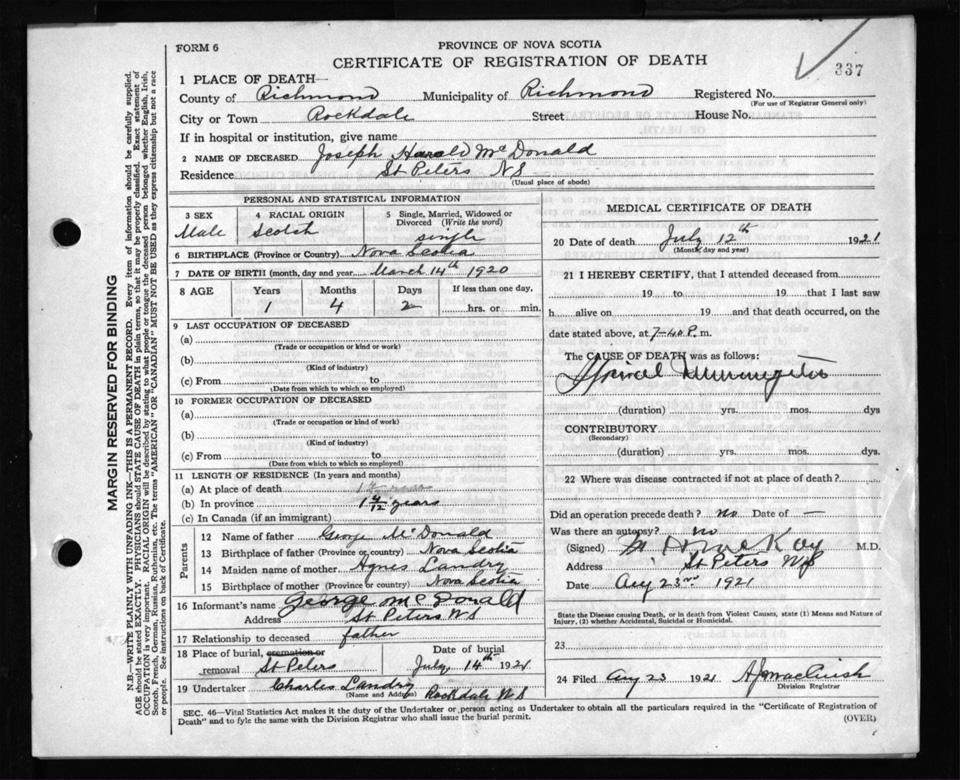 337
FORM 6
PROVINCE OF NOVA SCOTIA
CERTIFICATE OF REGISTRATION OF DEATH
1 PLACE OF DEATH—
County of Richmond Municipality of Richmond Registered No.
(For use of Registrar General only)
City or Town Rockdale Street House No.
If in hospital or institution, give name
2 NAME OF DECEASED Joseph Harald McDonald
Residence St Peters N S
(Usual place of abode)
PERSONAL AND STATISTICAL INFORMATION
3 SEX Male
4 RACIAL ORIGIN Scotch
5 Single, Married, Widowed or Divorced (Write the word) single
6 BIRTHPLACE (Province or Country) Nova Scotia
7 DATE OF BIRTH (month, day and year) March 14th 1920
8 AGE Years Months Days If less than one day,
1 4 2 hrs. or min.
9 LAST OCCUPATION OF DECEASED
(a)
(Trade or occupation or kind or work)
(b)
(Kind of industry)
(c) From to
(Date from which to which so employed)
10 FORMER OCCUPATION OF DECEASED
(a)
(Trade or occupation or kind of work)
(b)
(Kind of industry)
(c) From to
(Date from which to which so employed)
11 LENGTH OF RESIDENCE (In years and months)
(a) At place of death
(b) In province 1 4/12 years
(c) In Canada (if an immigrant)
Parents
12 Name of father George McDonald
13 Birthplace of father (Province or country) Nova Scotia
14 Maiden name of mother Agnes Landry
15 Birthplace of mother (Province or country) Nova Scotia
16 Informant's name George McDonald
Address St Peters N S
17 Relationship to deceased father
18 Place of burial, cremation or removal St Peters
Date of burial July 14th 1921
19 Undertaker Charles Landry Rockdale N S
(Name and Address)
MEDICAL CERTIFICATE OF DEATH
20 Date of death July 12th 1921
(Month, day and year)
21 I HEREBY CERTIFY, that I attended deceased from
19 to 19 that I last saw
h alive on 19 and that death occurred, on
date stated above, at 7-40 P. m.
The CAUSE OF DEATH was as follows:
Spinal Meningitis
(duration) yrs. mos. dys
CONTRIBUTORY
(Secondary)
(duration) yrs. mos. dys.
22 Where was disease contracted if not at place of death?
Did an operation precede death? no Date of —
Was there an autopsy? no
(Signed) M.D.
Address St Peters N S
Date Aug 23rd 1921
State the Disease causing Death, or in death from Violent Causes, state (1) Means and Nature of
Injury, (2) whether Accidental, Suicidal or Homicidal.
23
24 Filed Aug 23 1921
Division Registrar
SEC. 46—Vital Statistics Act makes it the duty of the Undertaker or person acting as Undertaker to obtain all the particulars required in the "Certificate of Registration of
Death" and to fyle the same with the Division Registrar who shall issue the burial permit.
(OVER)
MARGIN RESERVED FOR BINDING
N.B.—WRITE PLAINLY WITH UNFADING INK—THIS IS A PERMANENT RECORD. Every item of information should be carefully supplied.
AGE should be stated EXACTLY. PHYSICIANS should STATE CAUSE OF DEATH in plain terms, so that it may be properly classified. Exact statement of
OCCUPATION is very important. RACIAL ORIGIN will be described by stating to what people or tongue the deceased person belonged whether English, Irish,
Scotch, French, German, Russian, Ruthenian, etc. The terms "AMERICAN" OR "CANADIAN" MUST NOT BE USED as they express citizenship but not a race
or people. See instructions on back of Certificate.